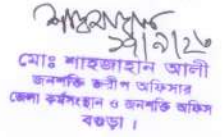 মোঃ শাহজাহান আলী
জনশক্তি জরীপ অফিসার
জেলা কর্মসংস্থান ও জনশক্তি অফিস
বগুড়া।